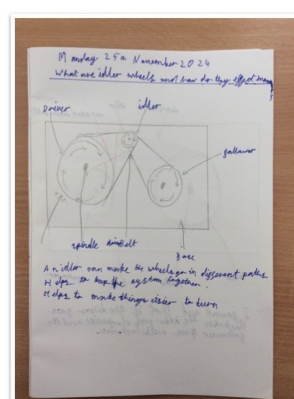 Monday 25th November 2024
What are idler wheels and how do they effect
Driver
idler
follower
spindle
drivebelt
Base
An idler can make the wheels go in different paths.
Helps to keep the system together.
Helps to make things easier to turn